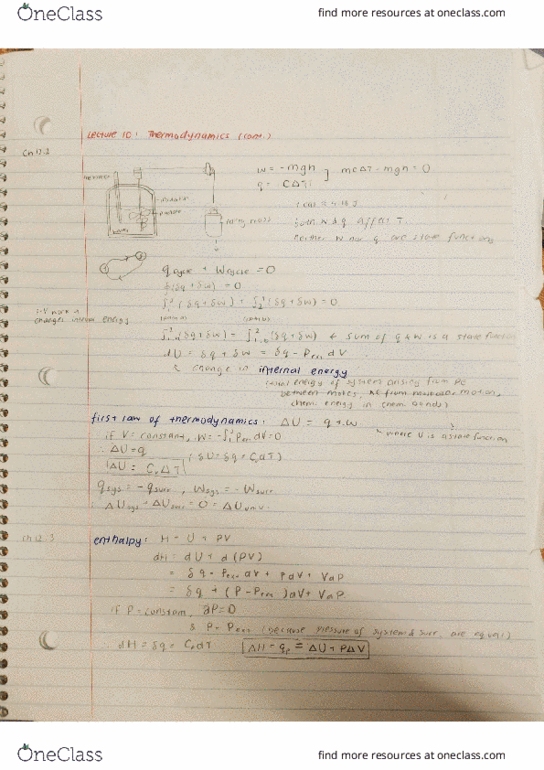 OneClass
find more resources at oneclass.com
Lecture 10: Thermodynamics (cont.)
Ch 12.2
w = -mgh
q = CΔT
mcΔT - mgh = 0
both w & q affect T.
neither w nor q are state functions
q_cycle + w_cycle = 0
∮(δq + δw) = 0
changes internal energy
← sum of q & w is a state function
dU = δq + δw = δq - P_ext dV
change in internal energy
(total energy of system arising from PE
between molecs, KE from molecular motion,
chem energy in chem bonds)
first law of thermodynamics: ΔU = q + w
where U is a state function
if V = constant, w = -∫ P_ext dV = 0
∴ ΔU = q
ΔU = C_vΔT
(dU = δq = C_v dT)
q_sys = -q_surr, w_sys = -w_surr
ΔU_sys + ΔU_surr = 0 = ΔU_univ
Ch 12.3
enthalpy: H = U + PV
dH = dU + d(PV)
= δq - P_ext dV + PdV + VdP
= δq + (P - P_ext)dV + VdP
if P = constant, dP = 0
& P = P_ext (because pressure of system & surr. are equal)
dH = δq = C_p dT
ΔH = q_p = ΔU + PΔV
OneClass
find more resources at oneclass.com